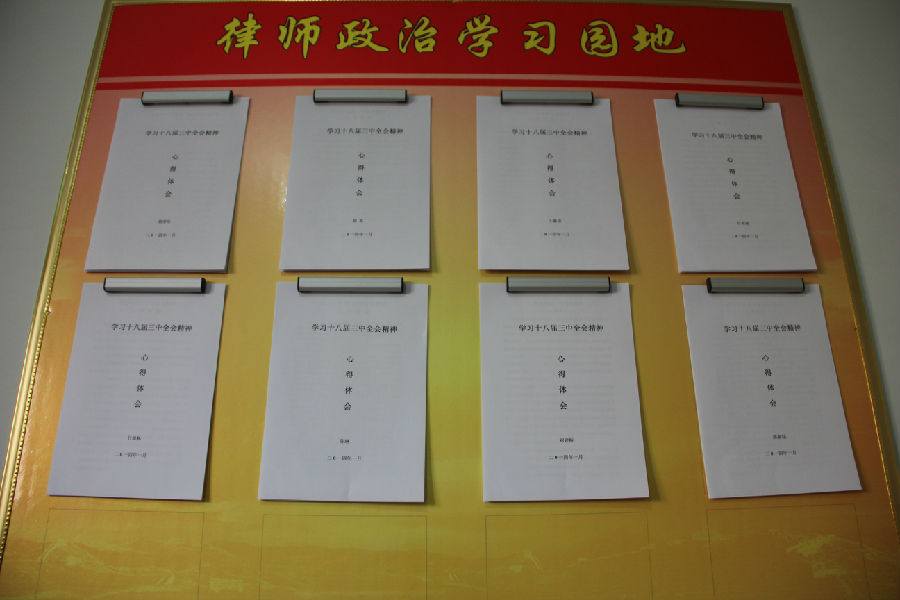 律师政治学习园地
学习十八届三中全会精神
心
得
体
会
二〇一四年一月
学习十八届三中全会精神
心
得
体
会
二〇一四年一月
学习十八届三中全会精神
心
得
体
会
二〇一四年一月
学习十八届三中全会精神
心
得
体
会
二〇一四年一月
学习十八届三中全会精神
心
得
体
会
二〇一四年一月
学习十八届三中全会精神
心
得
体
会
二〇一四年一月
学习十八届三中全会精神
心
得
体
会
二〇一四年一月
学习十八届三中全会精神
心
得
体
会
二〇一四年一月